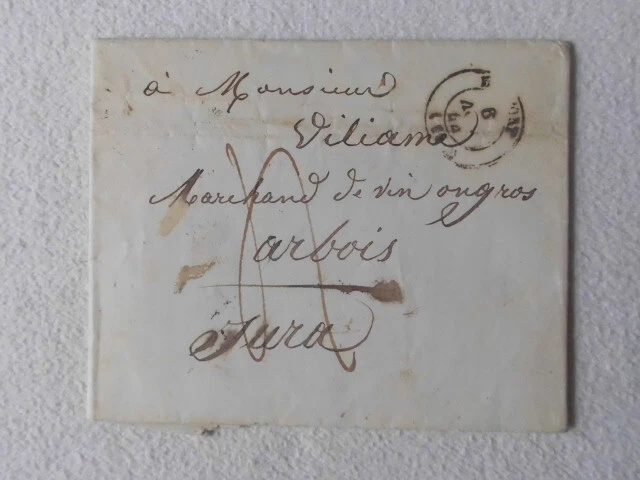 à Monsieur
Viliame
Marchand de vin ongros
arbois
Jura